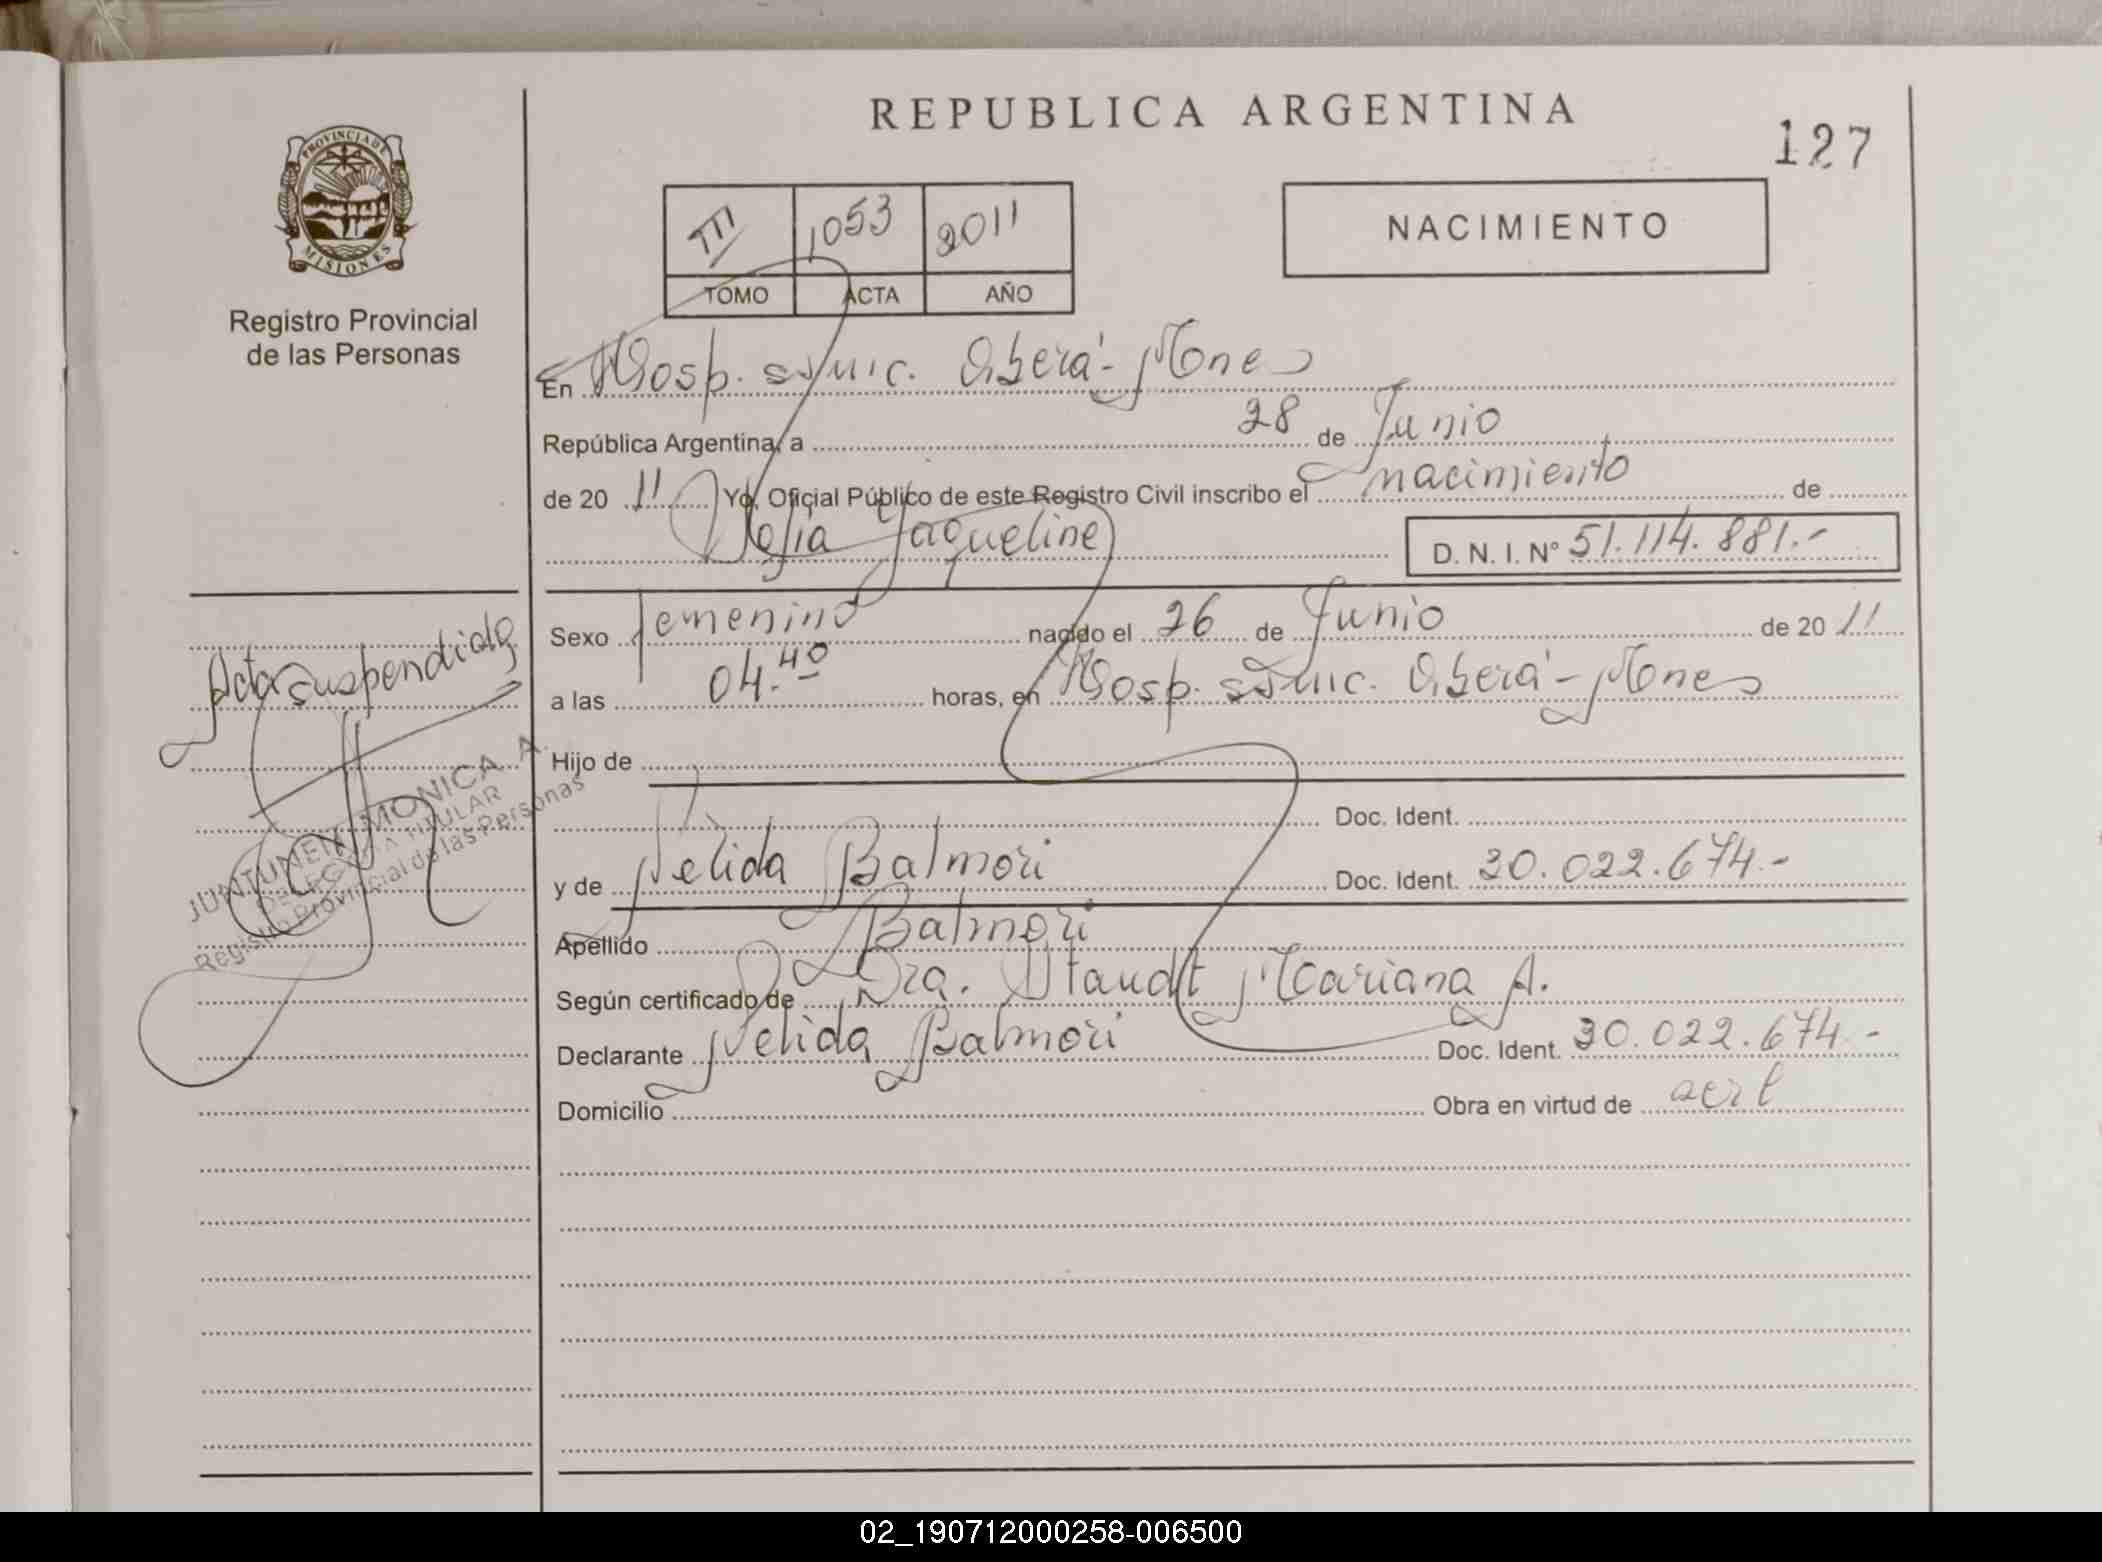 REPUBLICA ARGENTINA
127
PROVINCIA DE MISIONES
Registro Provincial
de las Personas
III 1053 2011
TOMO ACTA AÑO
NACIMIENTO
En Hosp. SAMIC. Oberá - Mnes
República Argentina, a 28 de Junio
de 20 11 Yo, Oficial Público de este Registro Civil inscribo el nacimiento de
Sofia Jaqueline D. N. I. Nº 51.114.881.-
Sexo femenino nacido el 26 de Junio de 20 11
a las 04.40 horas, en Hosp. SAMIC. Oberá - Mnes
Hijo de
Doc. Ident.
y de Nelida Balmori Doc. Ident. 30.022.674.-
Apellido Balmori
Según certificado de Dra. Staudt Mariana A.
Declarante Nelida Balmori Doc. Ident. 30.022.674.-
Domicilio Obra en virtud de
Acta Suspendida
MONICA A.
TITULAR
Registro Provincial de las Personas
02_190712000258-006500